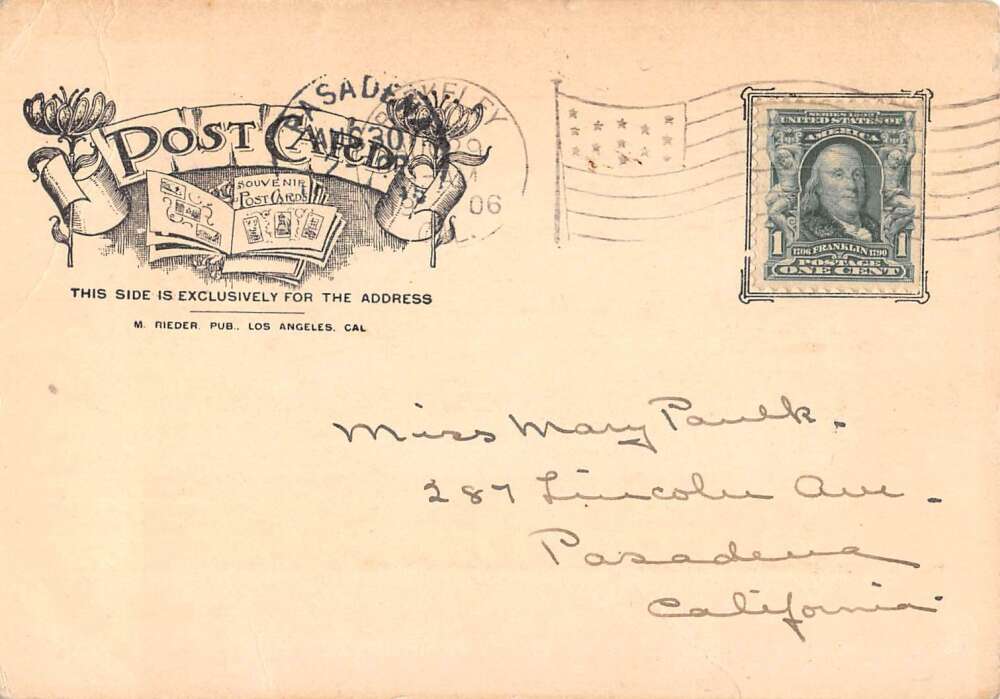 POST CARD
SOUVENIR
POST CARDS
THIS SIDE IS EXCLUSIVELY FOR THE ADDRESS
M. RIEDER. PUB., LOS ANGELES, CAL
PASADENA
30
BERKELEY
06
SERIES 1902
UNITED STATES OF
AMERICA
1 1
1706 FRANKLIN 1790
POSTAGE
ONE CENT
Miss Mary Paulk.
287 Lincoln Ave.
Pasadena
California